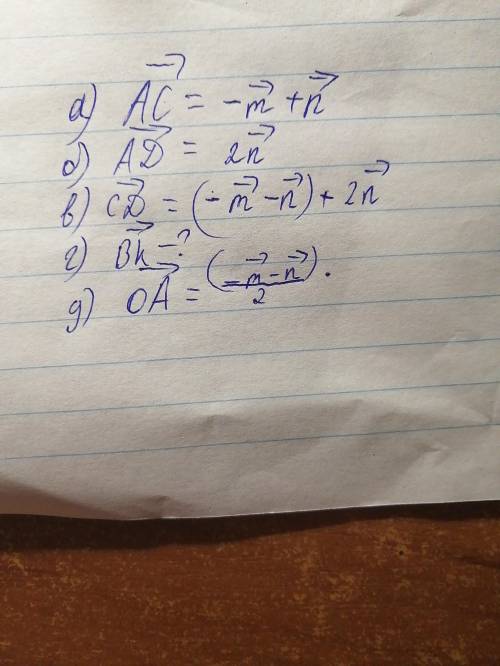 а) $\overrightarrow{AC} = -\vec{m} + \vec{n}$
б) $\overrightarrow{AD} = 2\vec{n}$
в) $\overrightarrow{CD} = (-\vec{m} - \vec{n}) + 2\vec{n}$
г) $\overrightarrow{BK}$ - ?
д) $\overrightarrow{OA} = \left(\frac{-\vec{m} - \vec{n}}{2}\right).$